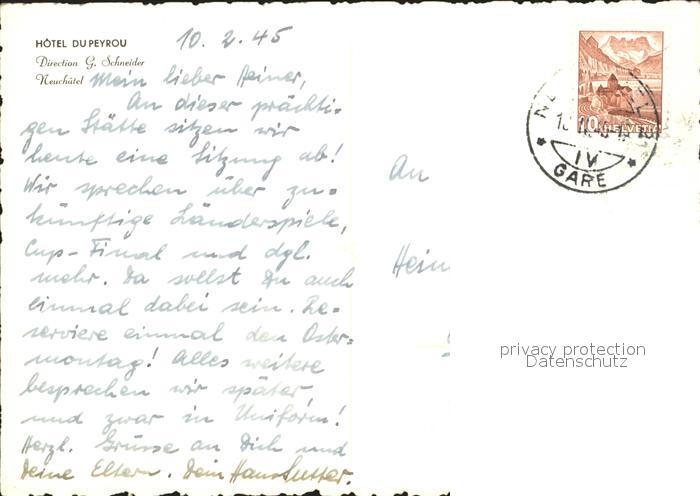 HÔTEL DU PEYROU
Direction G. Schneider
Neuchâtel
10. 2. 45
Mein lieber Heiner,
An dieser prächti-
gen Stätte sitzen wir
heute eine Sitzung ab!
Wir sprechen über zu-
künftige Länderspiele,
Cup-Final und dgl.
mehr. Da sollst Du auch
einmal dabei sein. Re-
serviere einmal den Oster-
montag! Alles weitere
besprechen wir später
und zwar in Uniform!
Herzl. Grüsse an Dich und
Deine Eltern. Dein Hans Sutter.
An
Hein
10 HELVETIA
IV
GARE
privacy protection
Datenschutz